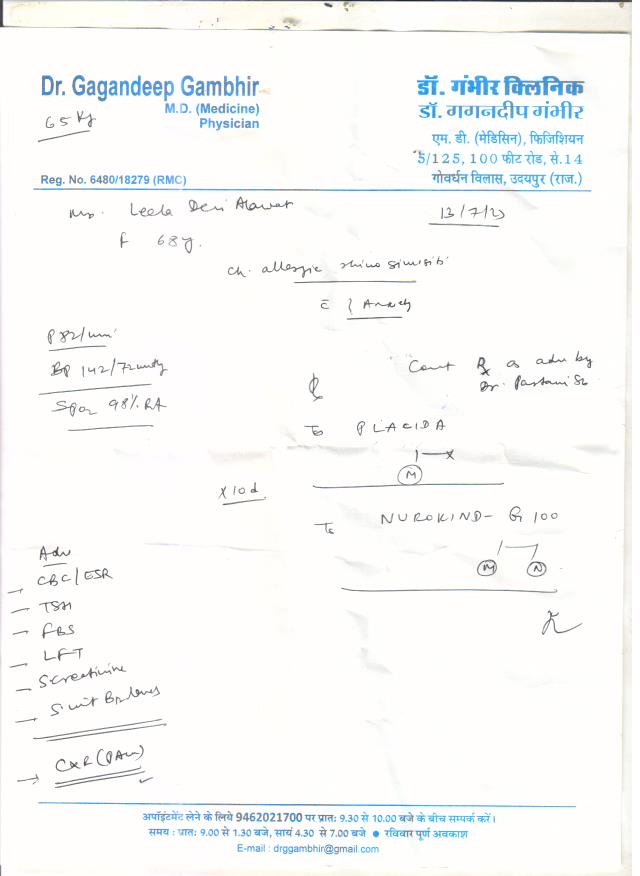 Dr. Gagandeep Gambhir
M.D. (Medicine)
Physician
65 Kg
Reg. No. 6480/18279 (RMC)
डॉ. गंभीर क्लिनिक
डॉ. गगनदीप गंभीर
एम. डी. (मेडिसिन), फिजिशियन
5/125, 100 फीट रोड, से.14
गोवर्धन विलास, उदयपुर (राज.)
Leela Devi
13/7/23
F 68y.
Ch. allergic rhino sinusitis
c̄ ? Anxiety
P 82/min
BP 142/72 mmHg
SpO2 98% RA
Cont Rx as adv by
Dr.
T PLACIDA
M
x 10d
T NUROKIND- G 100
M N
Adv
— CBC/ESR
— TSH
— FBS
— LFT
— S. creatinine
— S. vit B12 levels
→ CXR (PA)
अपॉइंटमेंट लेने के लिये 9462021700 पर प्रात: 9.30 से 10.00 बजे के बीच सम्पर्क करें।
समय : प्रात: 9.00 से 1.30 बजे, सायं 4.30 से 7.00 बजे ● रविवार पूर्ण अवकाश
E-mail : drggambhir@gmail.com